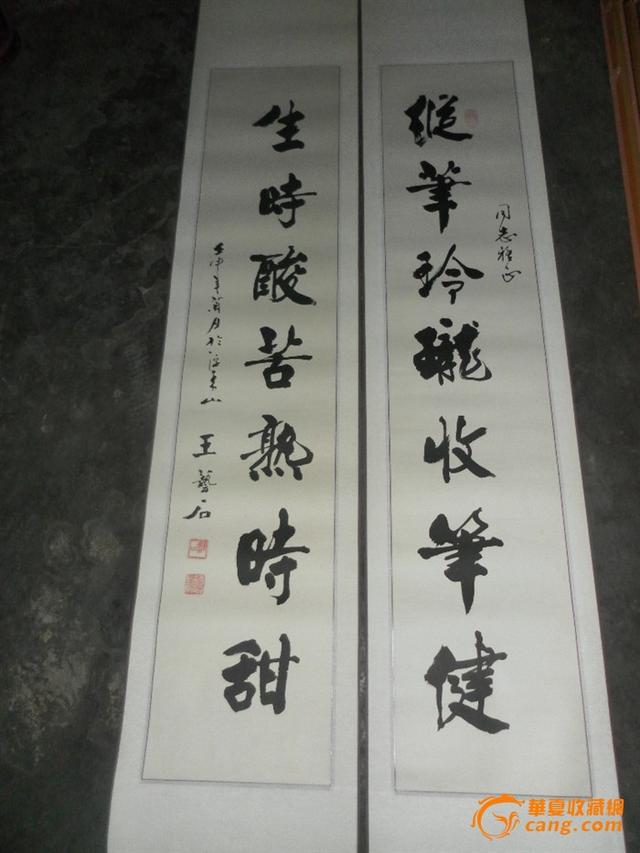 縱筆玲瓏收筆健
同志雅正
生時酸苦熟時甜
壬申年
王藝石
華夏收藏網
cang.com